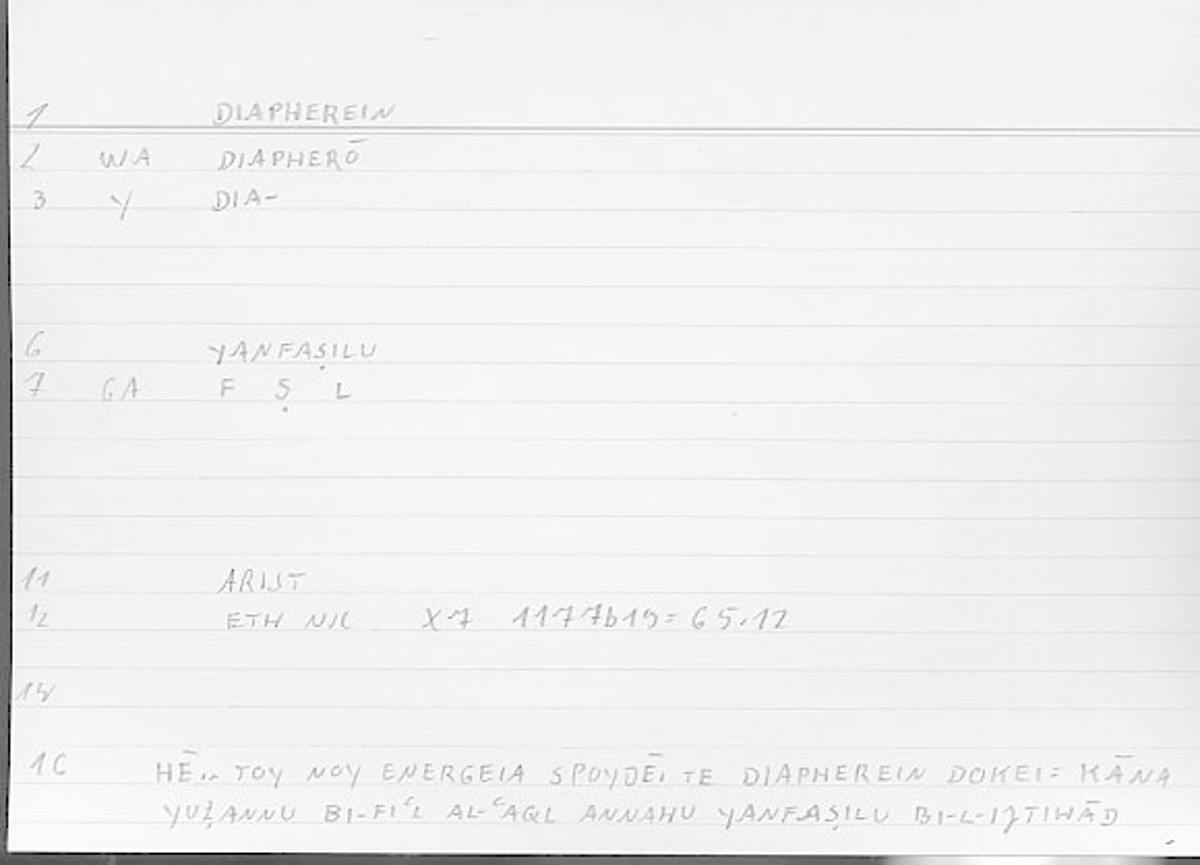 1 DIAPHEREIN
2 WA DIAPHERŌ
3 Y DIA-
6 YANFAṢILU
7 GA F Ṣ L
11 ARIST
12 ETH NIC X 7 1177b19 = 65.12
14
16 HĒ... TOY NOY ENERGEIA SPOYDĒi TE DIAPHEREIN DOKEI = KĀNA
YUẒANNU BI-FIʿL AL-ʿAQL ANNAHU YANFAṢILU BI-L-IǦTIHĀD